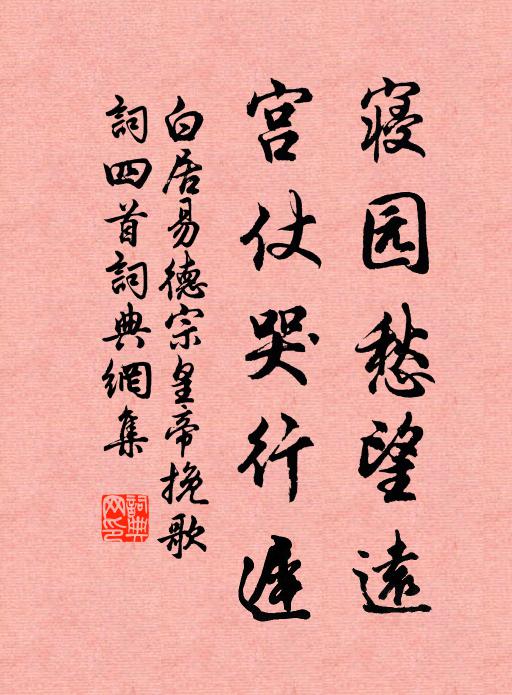 寝园愁望遠
宫仗哭行遲
白居易德宗皇帝挽歌
詞四首詞典網集
詞典网印